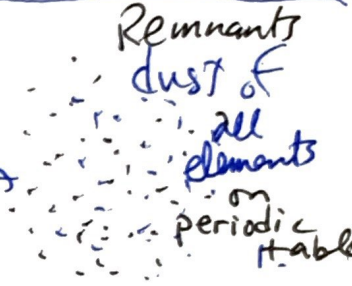 Remnants
dust of
all
elements
on
periodic
table